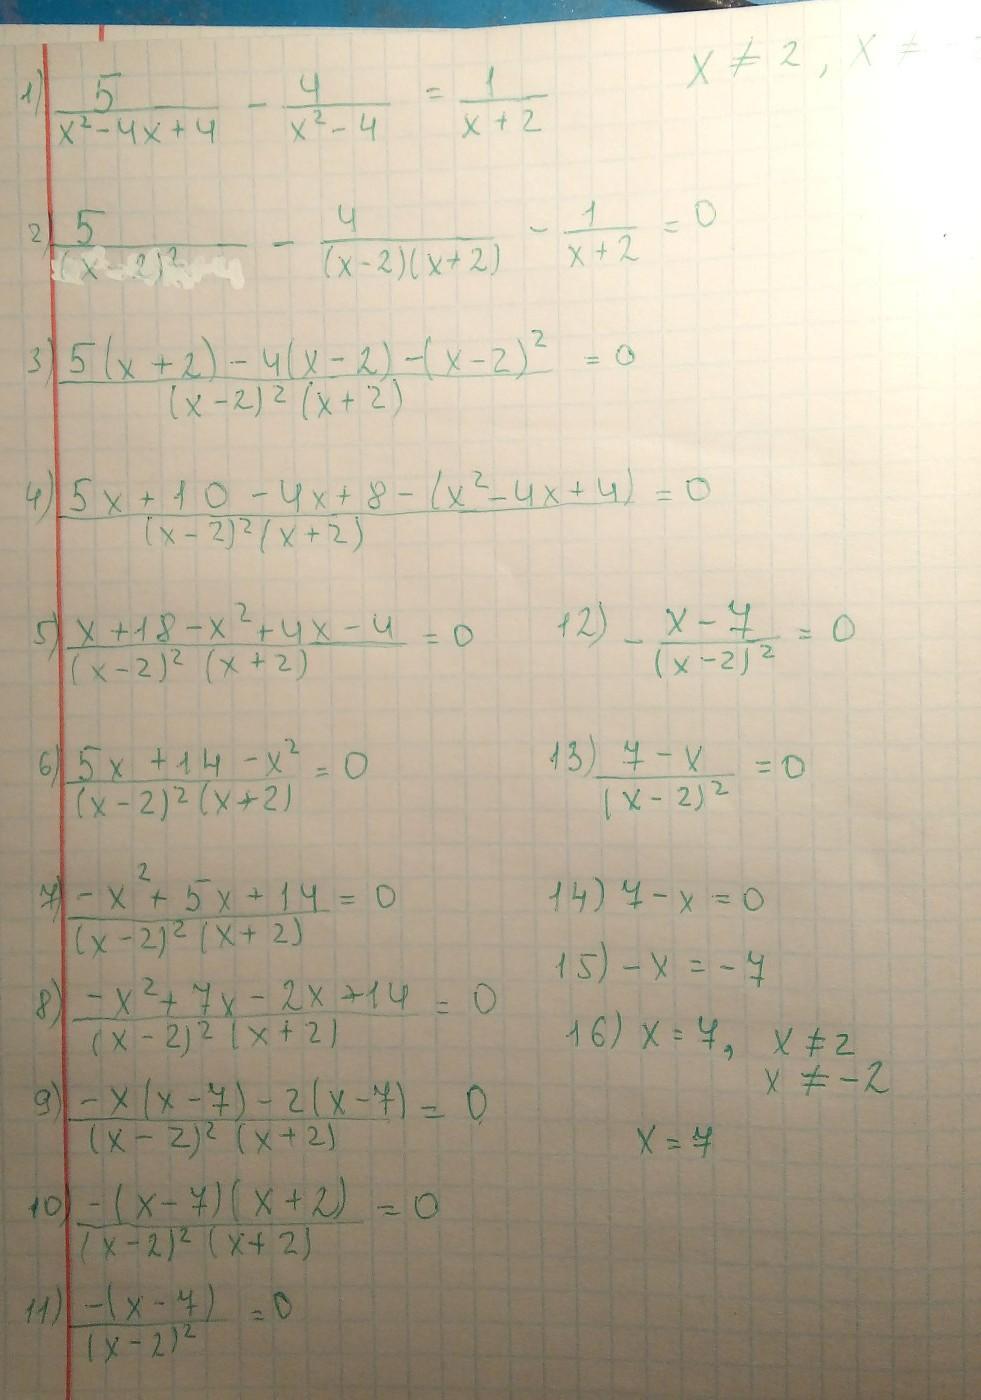 1) 5/(x²-4x+4) - 4/(x²-4) = 1/(x+2) x ≠ 2, x ≠ -2
2) 5/(x-2)² - 4/((x-2)(x+2)) - 1/(x+2) = 0
3) (5(x+2)-4(x-2)-(x-2)²)/((x-2)²(x+2)) = 0
4) (5x+10-4x+8-(x²-4x+4))/((x-2)²(x+2)) = 0
5) (x+18-x²+4x-4)/((x-2)²(x+2)) = 0
6) (5x+14-x²)/((x-2)²(x+2)) = 0
7) (-x²+5x+14)/((x-2)²(x+2)) = 0
8) (-x²+7x-2x+14)/((x-2)²(x+2)) = 0
9) (-x(x-7)-2(x-7))/((x-2)²(x+2)) = 0
10) (-(x-7)(x+2))/((x-2)²(x+2)) = 0
11) (-(x-7))/(x-2)² = 0
12) - (x-7)/(x-2)² = 0
13) (7-x)/(x-2)² = 0
14) 7-x=0
15) -x=-7
16) x=7, x≠2
x≠-2
x=7